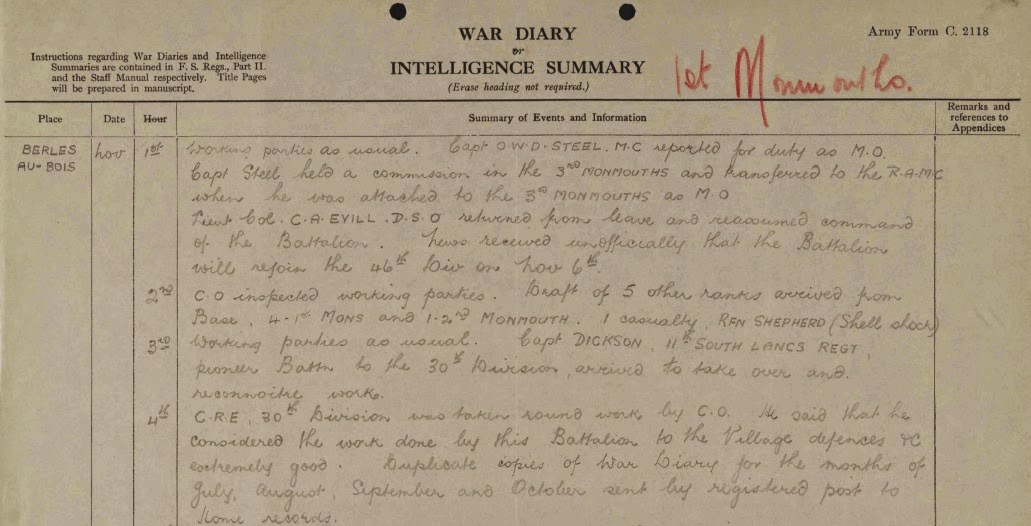 WAR DIARY
or
INTELLIGENCE SUMMARY
(Erase heading not required.)
Army Form C. 2118
Instructions regarding War Diaries and Intelligence
Summaries are contained in F. S. Regs., Part II.
and the Staff Manual respectively. Title Pages
will be prepared in manuscript.
1st Monmouths.
Place
Date
Hour
Summary of Events and Information
Remarks and
references to
Appendices
BERLES
AU-BOIS
Nov
1st Working parties as usual. Capt O.W.D. STEEL. M.C reported for duty as M.O.
Capt Steel held a commission in the 3rd MONMOUTHS and transferred to the R.A.M.C
when he was attached to the 3rd MONMOUTHS as M.O
Lieut Col. C.A. EVILL. D.S.O returned from leave and reassumed command
of the Battalion. News received unofficially that the Battalion
will rejoin the 46th Div on Nov 6th.
2nd C.O inspected working parties. Draft of 5 other ranks arrived from
Base, 4-1st MONS and 1-2nd MONMOUTH. 1 casualty, RFN SHEPHERD (Shell shock)
3rd Working parties as usual. Capt DICKSON, 11th SOUTH LANCS REGT,
pioneer Battn to the 30th Division, arrived to take over and
reconnoitre work.
4th C.R.E, 30th Division was taken round work by C.O. He said that he
considered the work done by this Battalion to the Village defences &c
extremely good. Duplicate copies of War Diary for the months of
July, August, September and October sent by registered post to
Home records.